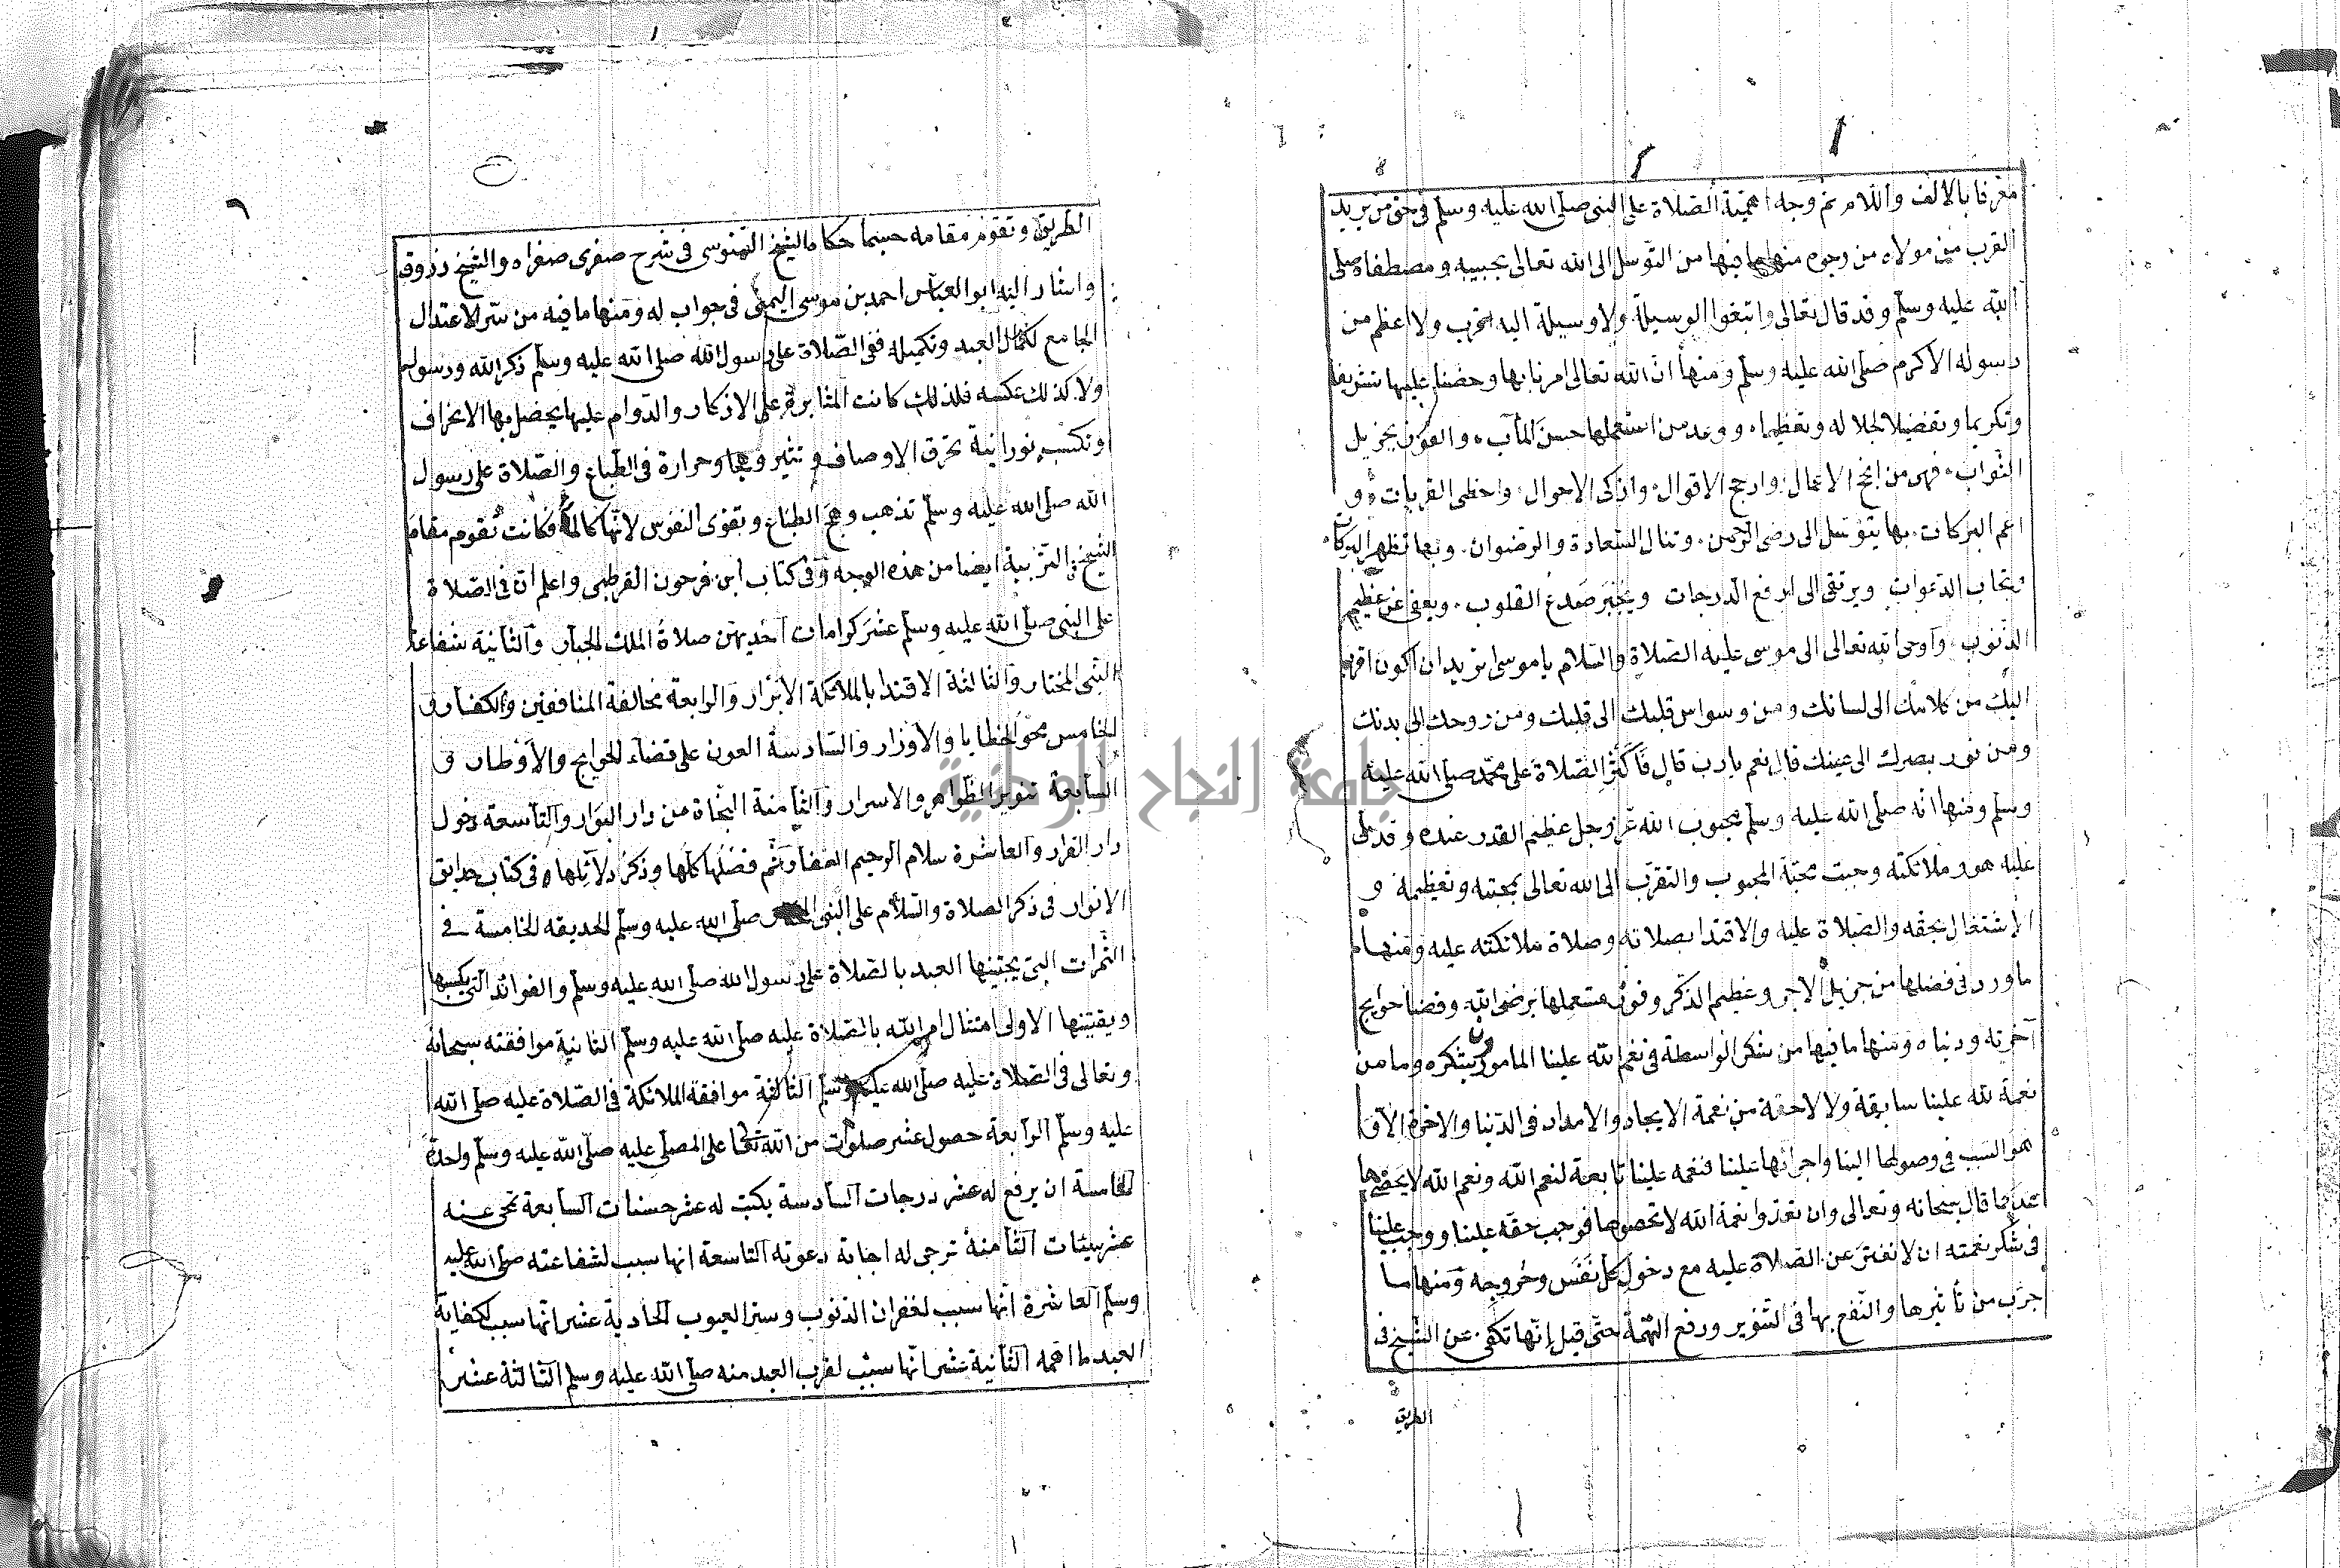 معرفا بالالف واللام ثم وجه اهمية الصلاة على النبي صلى الله عليه وسلم في حق من يريد
القرب من مولاه من وجوه منها ما فيها من التوسل الى الله تعالى بحبيبه ومصطفاه صلى
الله عليه وسلم وقد قال تعالى وابتغوا اليه الوسيلة ولا وسيلة اليه اقرب ولا اعظم من
رسوله الاكرم صلى الله عليه وسلم ومنها ان الله تعالى امرنا بها وحضنا عليها تشريفا
وتكريما وتفضيلا لجلاله وتعظيما ووعد من استعملها حسن المآب والفوز بجزيل
الثواب فهي من انجح الاعمال وارجح الاقوال وازكى الاحوال واحظى القربات و
اعم البركات بها يتوسل الى رضى الرحمن وتنال السعادة والرضوان وبها تظهر البركات
وتجاب الدعوات ويرتقى الى ارفع الدرجات ويجبر صدع القلوب ويعفى عن عظيم
الذنوب واوحى الله تعالى الى موسى عليه الصلاة والسلام يا موسى اتريد ان اكون اقرب
اليك من كلامك الى لسانك ومن وسواس قلبك الى قلبك ومن روحك الى بدنك
ومن نور بصرك الى عينك قال نعم يارب قال فاكثر الصلاة على محمد صلى الله عليه
وسلم ومنها انه صلى الله عليه وسلم محبوب الله عز وجل عظيم القدر عنده وقد صلى
عليه هو وملائكته وجبت محبة المحبوب والتقرب الى الله تعالى بمحبته وتعظيمه و
الاشتغال بحقه والصلاة عليه والاقتدا بصلاته وصلاة ملائكته عليه ومنها
ما ورد في فضلها من جزيل الاجر وعظيم الذكر وفوز مستعملها برضى الله وقضا حوايج
آخرته ودنياه ومنها ما فيها من شكر الواسطة في نعم الله علينا المامورون بشكره وما من
نعمة لله علينا سابقة ولا لاحقة من نعمة الايجاد والامداد في الدنيا والاخرة الا و
هو السبب في وصولها الينا واجرائها علينا فنعمه علينا تابعة لنعم الله ونعم الله لا يحصيها
عدد كما قال سبحانه وتعالى وان تعدوا نعمة الله لا تحصوها فوجب حقه علينا ووجب علينا
في شكر نعمته ان لا نفتر عن الصلاة عليه مع دخول كل نفس وخروجه ومنها ما
جرب من تأثيرها والنفع بها في التنوير ورفع الهمة حتى قيل إنها تكفى عن الشيخ في
الطريق
٦
الطريق وتقوم مقامه حسبما حكاه الشيخ السنوسى في شرح صغرى صغراه والشيخ زروق
واشار اليه ابو العباس احمد بن موسى اليمنى في جواب له ومنها ما فيه من سر الاعتدال
الجامع لكمال العبد وتكميله ففي الصلاة على رسول الله صلى الله عليه وسلم ذكر الله ورسوله
ولا كذلك عكسه فلذلك كانت المثابرة على الاذكار والدوام عليها يحصل بها الانحراف
وتكسب نورانية تحرق الاوصاف وتثير وهجا وحرارة في الطباع والصلاة على رسول
الله صلى الله عليه وسلم تذهب وهج الطباع وتقوى النفوس لانها كالماء فكانت تقوم مقام
الشيخ في التربية ايضا من هذه الوجه وفي كتاب ابن فرحون القرطبى واعلم ان في الصلاة
على النبى صلى الله عليه وسلم عشر كرامات احديهن صلاة الملك الجبار والثانية شفاعة
النبي المختار والثالثة الاقتدا بالملائكة الابرار والرابعة مخالفة المنافقين والكفار و
الخامس محو الخطايا والاوزار والسادسة العون على قضاء الحوايج والاوطار و
السابعة تنوير الظواهر والاسرار والثامنة النجاة من دار البوار والتاسعة دخول
دار القرار والعاشرة سلام الرحيم الغفار ثم فضلها كلها وذكر دلائلها وفي كتاب حدايق
الانوار في ذكر الصلاة والسلام على النبى صلى الله عليه وسلم الحديقه الخامسة في
الثمرات التى يجتنيها العبد بالصلاة على رسول الله صلى الله عليه وسلم والفوائد التى يكسبها
ويقتنيها الاولى امتثال امر الله بالصلاة عليه صلى الله عليه وسلم الثانية موافقته سبحانه
وتعالى في الصلاة عليه صلى الله عليه وسلم الثالثة موافقة الملائكة في الصلاة عليه صلى الله
عليه وسلم الرابعة حصول عشر صلوات من الله تعالى على المصلى عليه صلى الله عليه وسلم واحدة
الخامسة ان يرفع له عشر درجات السادسة يكتب له عشر حسنات السابعة تمحى عنه
عشر سيئات الثامنة ترجى له اجابة دعوته التاسعة انها سبب لشفاعته صلى الله عليه
وسلم العاشرة انها سبب لغفران الذنوب وستر العيوب الحادية عشر انها سبب لكفاية
العبد ما اهمه الثانية عشر انها سبب لقرب العبد منه صلى الله عليه وسلم الثالثة عشر
جامعة النجاح الوطنية